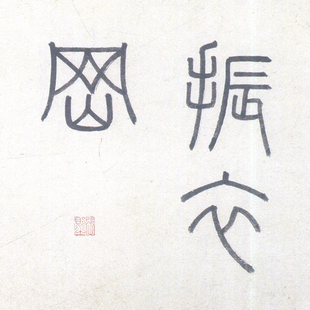 振衣
岡